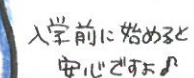 入学前に始めると
安心ですよ♪